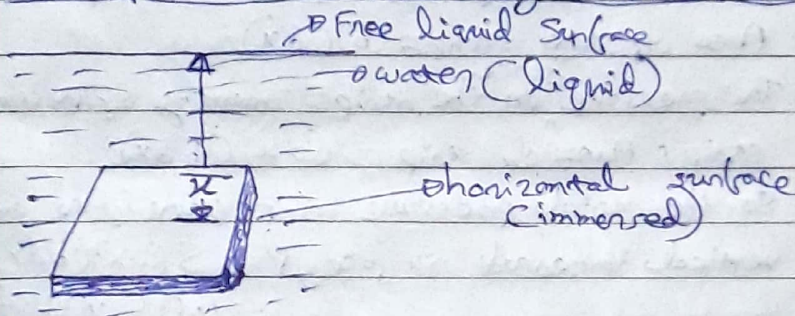 Free liquid Surface
water (liquid)
x̄
horizontal surface
(immersed)